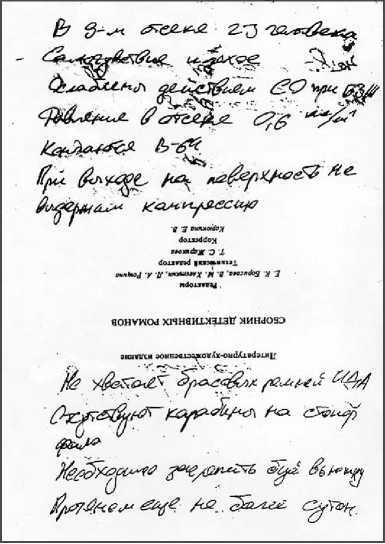 В 9-м отсеке 23 человека
Самочувствие плохое
Ослаблены действием СО при БЗЖ
Давление в отсеке 0,6 кг/м²
Кончаются В-64
При выходе на поверхность не
выдержим компрессию
Корюкина Е. В.
Корректор
Т. С. Жарикова
Технический редактор
Е. К. Борисова, В. М. Халиткин, Д. А. Рощина
Редакторы
СБОРНИК ДЕТЕКТИВНЫХ РОМАНОВ
Литературно-художественное издание
Не хватает брасовых ремней ИДА
Отсутствуют карабины на стопор
фала
Необходимо закрепить буй выход
Протянем еще не более суток